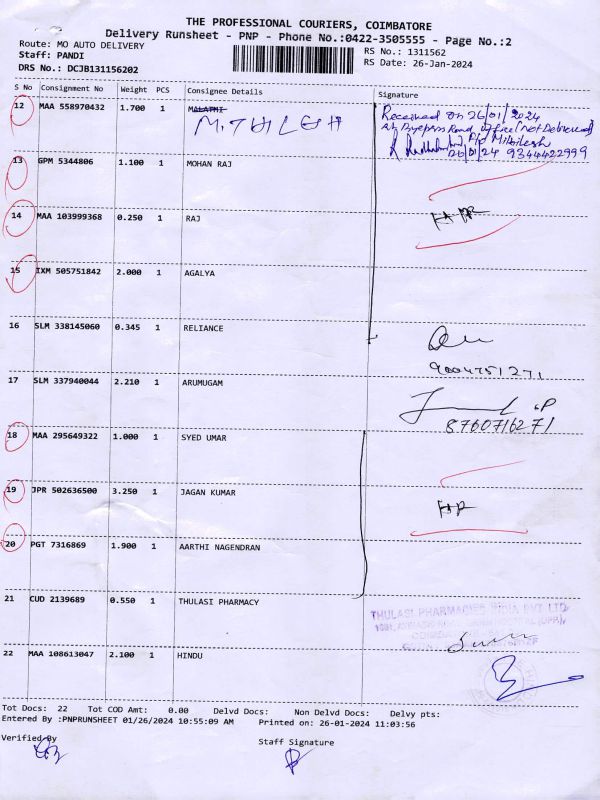 THE PROFESSIONAL COURIERS, COIMBATORE
Delivery Runsheet - PNP - Phone No.:0422-3505555 - Page No.:2
Route: MO AUTO DELIVERY
Staff: PANDI
DRS No.: DCJB131156202
RS No.: 1311562
RS Date: 26-Jan-2024
S No Consignment No Weight PCS Consignee Details Signature
12 MAA 558970432 1.700 1 MALATHI
MITHILESH
Received on 26/01/2024
at Byepass Road office (not Delivered)
Mithilesh
26/01/24 9344422999
13 GPM 5344806 1.100 1 MOHAN RAJ
14 MAA 103999368 0.250 1 RAJ
15 IXM 505751842 2.000 1 AGALYA
16 SLM 338145060 0.345 1 RELIANCE
9004751271
17 SLM 337940044 2.210 1 ARUMUGAM
8760716271
18 MAA 295649322 1.000 1 SYED UMAR
19 JPR 502636500 3.250 1 JAGAN KUMAR
20 PGT 7316869 1.900 1 AARTHI NAGENDRAN
21 CUD 2139689 0.550 1 THULASI PHARMACY
THULASI PHARMACIES INDIA PVT LTD
22 MAA 108613047 2.100 1 HINDU
Tot Docs: 22 Tot COD Amt: 0.00 Delvd Docs: Non Delvd Docs: Delvy pts:
Entered By :PNPRUNSHEET 01/26/2024 10:55:09 AM Printed on: 26-01-2024 11:03:56
Verified By
Staff Signature